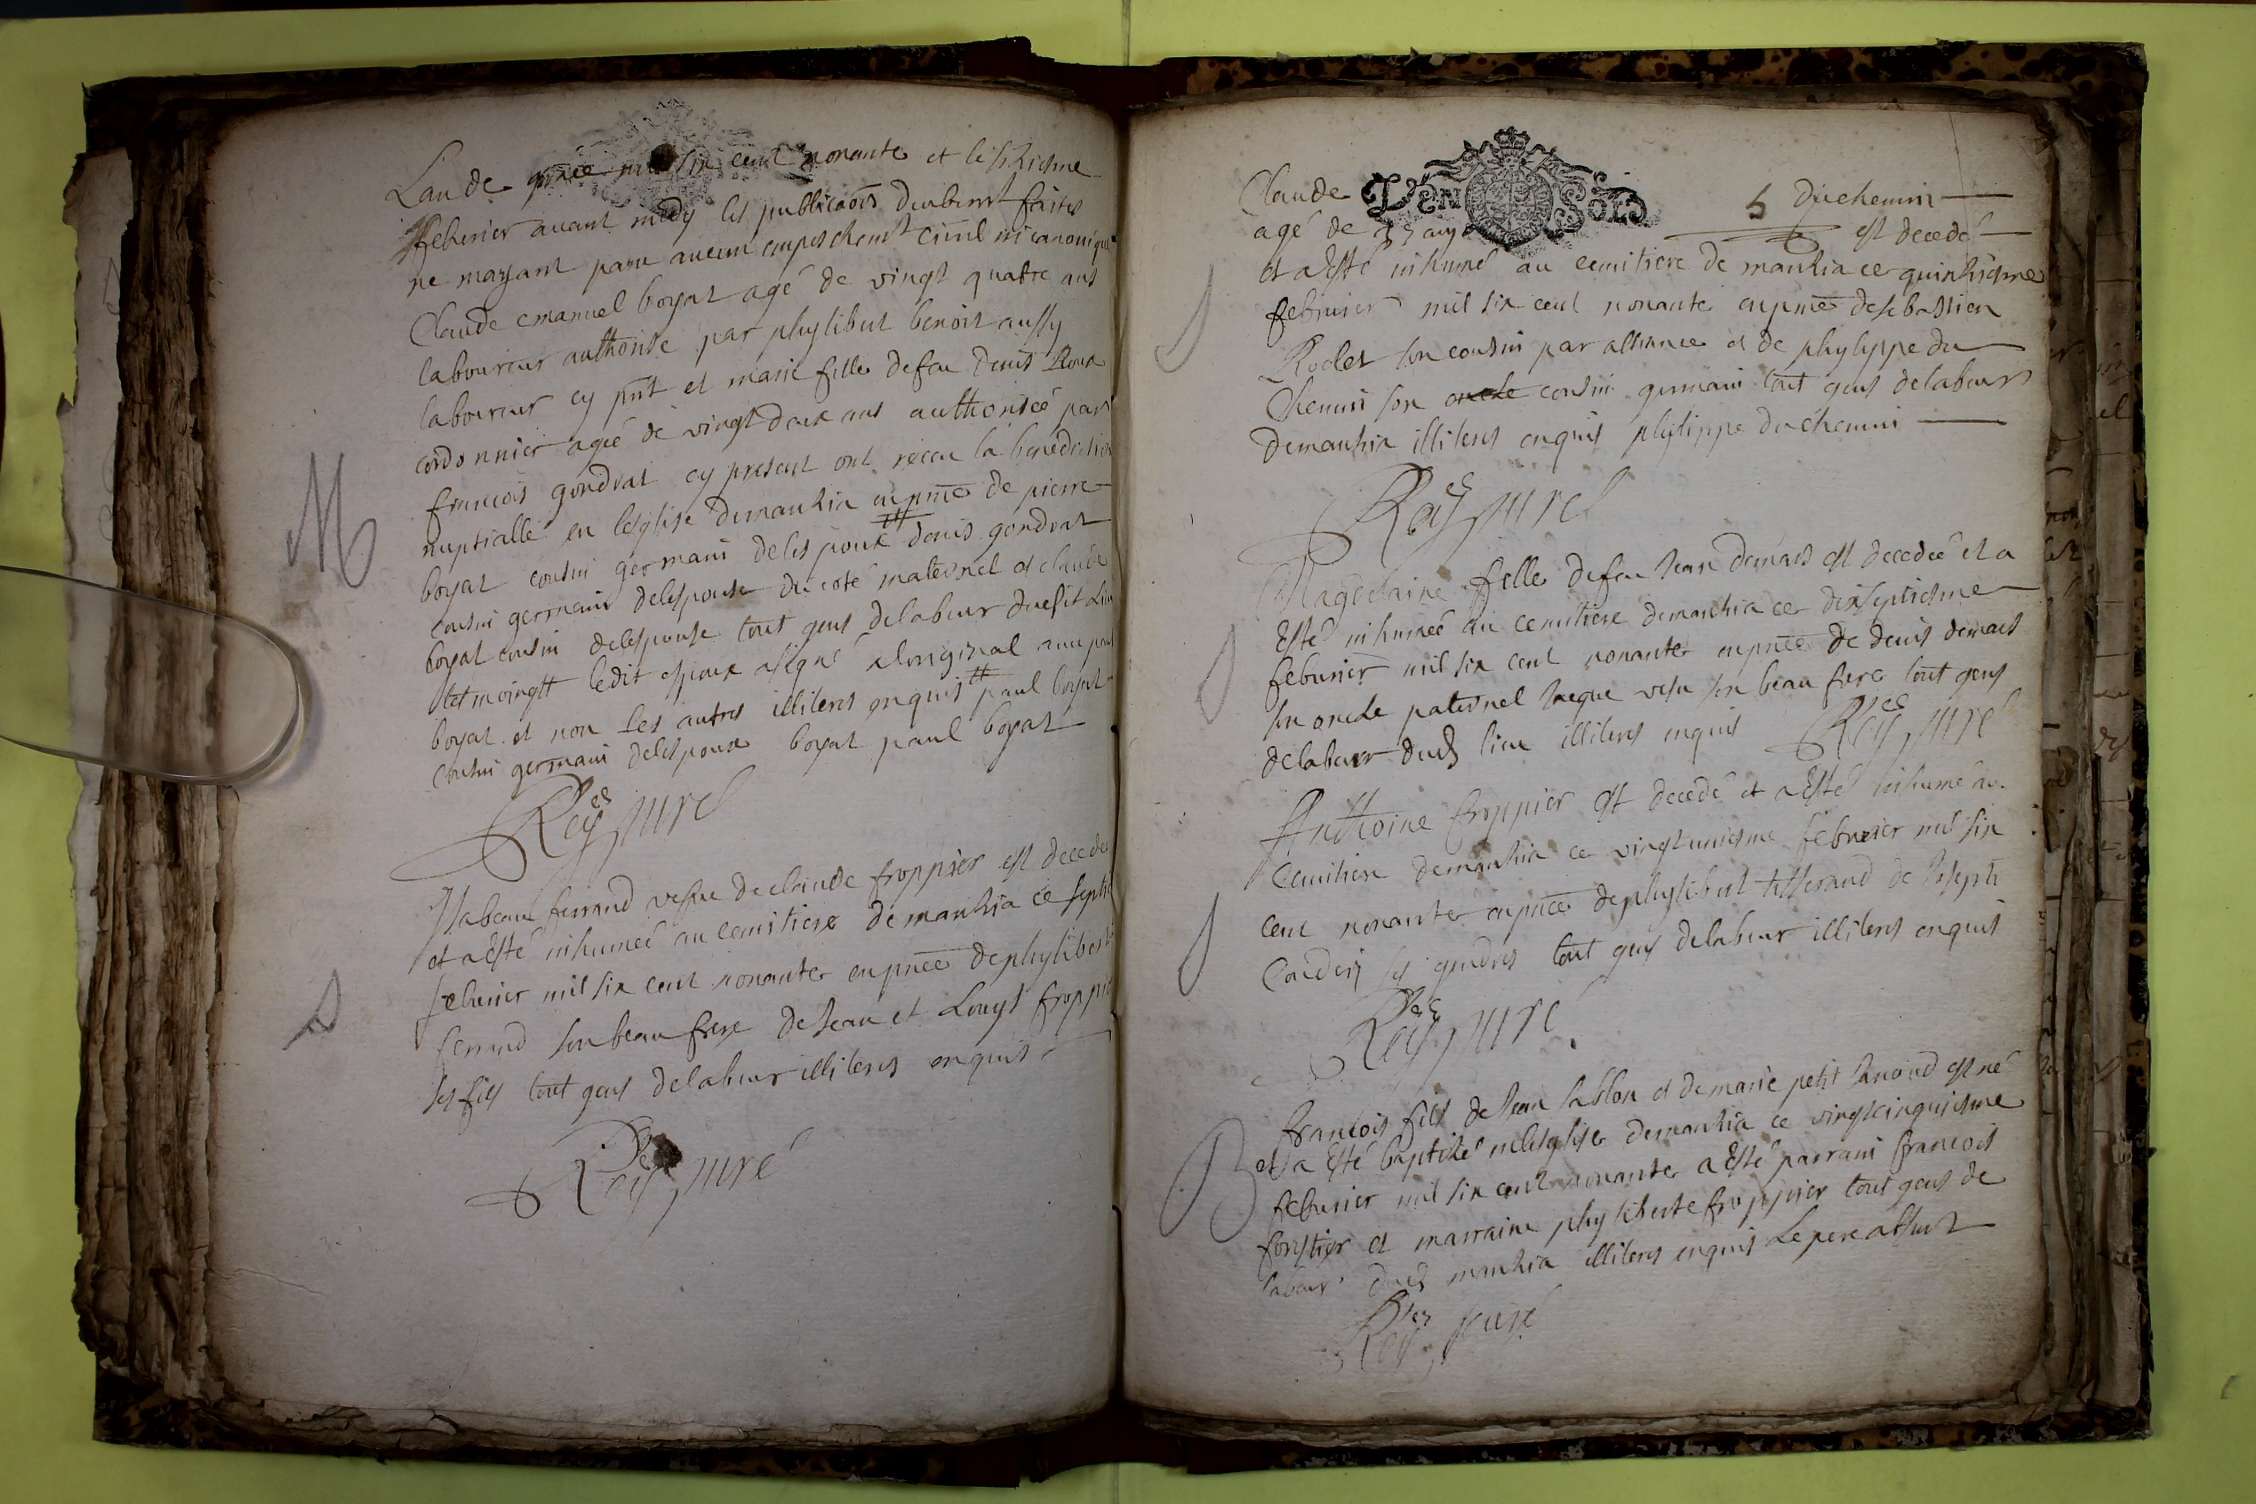 Lan de grace mil six cent nonante et le sixiesme
febvrier avant midy les publicaõns deubemt faites
ne mayant paru aucun empeschemt civil ni canonique
Claude emanuel boyat agé de vingt quatre ans
laboureur authorisé par phylibert benoit aussy
laboureur cy pnt et marie fille de feu denis Roux
cordonnier agée de vingt deux ans authorisée par
francois gondrat cy present ont receu la benediction
nuptialle en leglise de manzia en pnce de pierre
boyat cousin germain de lespoux denis gondrat
cousin germain de lespouse du coté maternel et claude
boyat cousin de lespouse tout gens de labeur dudit lieu
tesmoingtt ledit espoux a signé a loriginal avec paul
boyat et non les autres illiteres enquis tt paul boyat
cousin germain de lespoux boyat paul boyat
Rey curé
Ysabeau ferrand vesve de claude froppier est decedée
et a esté inhumée au cemitiere de manzia ce septie
febvrier mil six cent nonante en pnce de phylibert
ferrand son beau frere de Jean et Louys froppier
ses fils tout gens de labeur illiteres enquis
Rey curé
Claude duchemin
D'EN SOLZ
5
agé de ans est decedé
et a esté inhumé au cemitiere de manzia ce quinziesme
febvrier mil six cent nonante en pnce de sebastien
Rodet son cousin par alliance et de phylippe du
Chemin son oncle cousin germain tout gens de labeur
de manzia illiteres enquis phylippe duchemin
Rey curé
Magdelaine fille de feu Jean demais est decedée et a
esté inhumée au cemitiere de manzia ce dixseptiesme
febvrier mil six cent nonante en pnce de denis demais
son oncle paternel Jaque vesu son beau frere tout gens
de labeur dud lieu illiteres enquis Rey curé
Anthoine froppier est decedé et a esté inhumé au
Cemitiere de manzia ce vingtuniesme febvrier mil six
cent nonante en pnce de phylibert tisserand de Joseph
ses gendres tout gens de labeur illiteres enquis
Rey curé
B
francois fils de Jean sablon et de marie petit Janod est né
et a esté baptisé en lesglise de manzia ce vingtcinquiesme
febvrier mil six cent nonante a esté parrain francois
forestier et marraine phyliberte froppier tout gens de
labeur dud manzia illiteres enquis Le pere absent
Rey curé
M